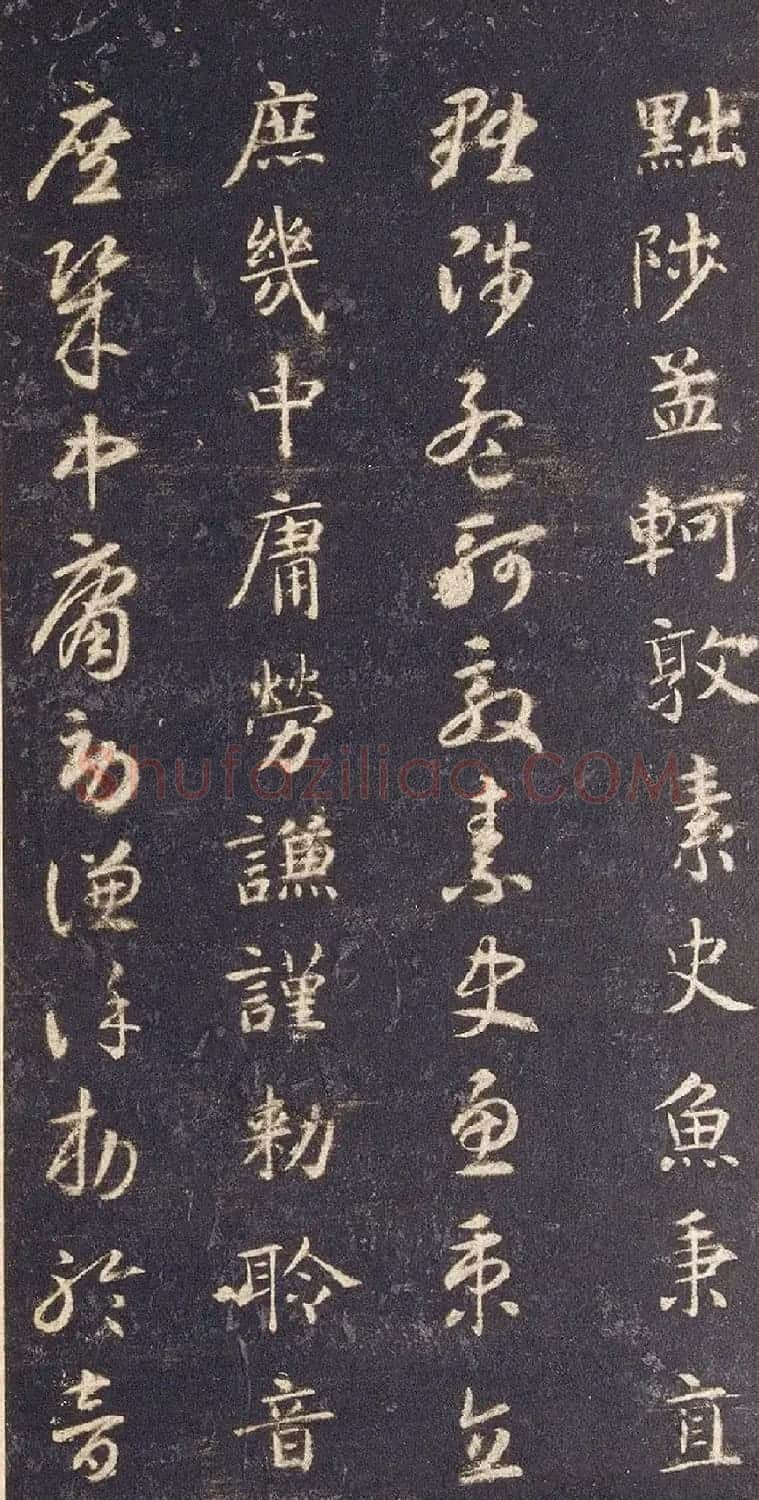 黜陟孟軻敦素史魚秉直
黜陟孟軻敦素史魚秉直
庶幾中庸勞謙謹勅聆音
庶幾中庸勞謙謹勅聆音
Shufaziliao.COM